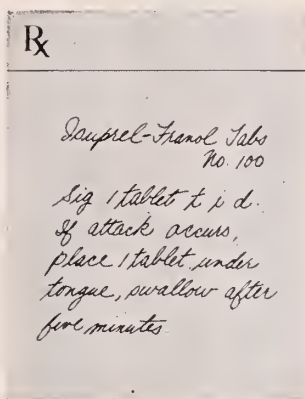 Rx
Isuprel-Franol Tabs
No. 100
Sig 1 tablet t i d.
If attack occurs,
place 1 tablet under
tongue, swallow after
five minutes.